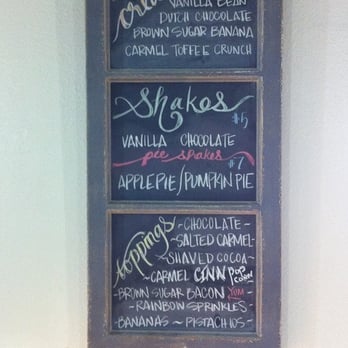 VANILLA BEAN
DUTCH CHOCOLATE
BROWN SUGAR BANANA
CARMEL TOFFEE CRUNCH
Shakes
$5
VANILLA CHOCOLATE
pie shakes $7
APPLE PIE/PUMPKIN PIE
toppings
-CHOCOLATE-
-SALTED CARMEL-
-SHAVED COCOA-
-CARMEL CINN POPCORN
-BROWN SUGAR BACON YUM-
-RAINBOW SPRINKLES
-BANANAS ~ PISTACHIOS-